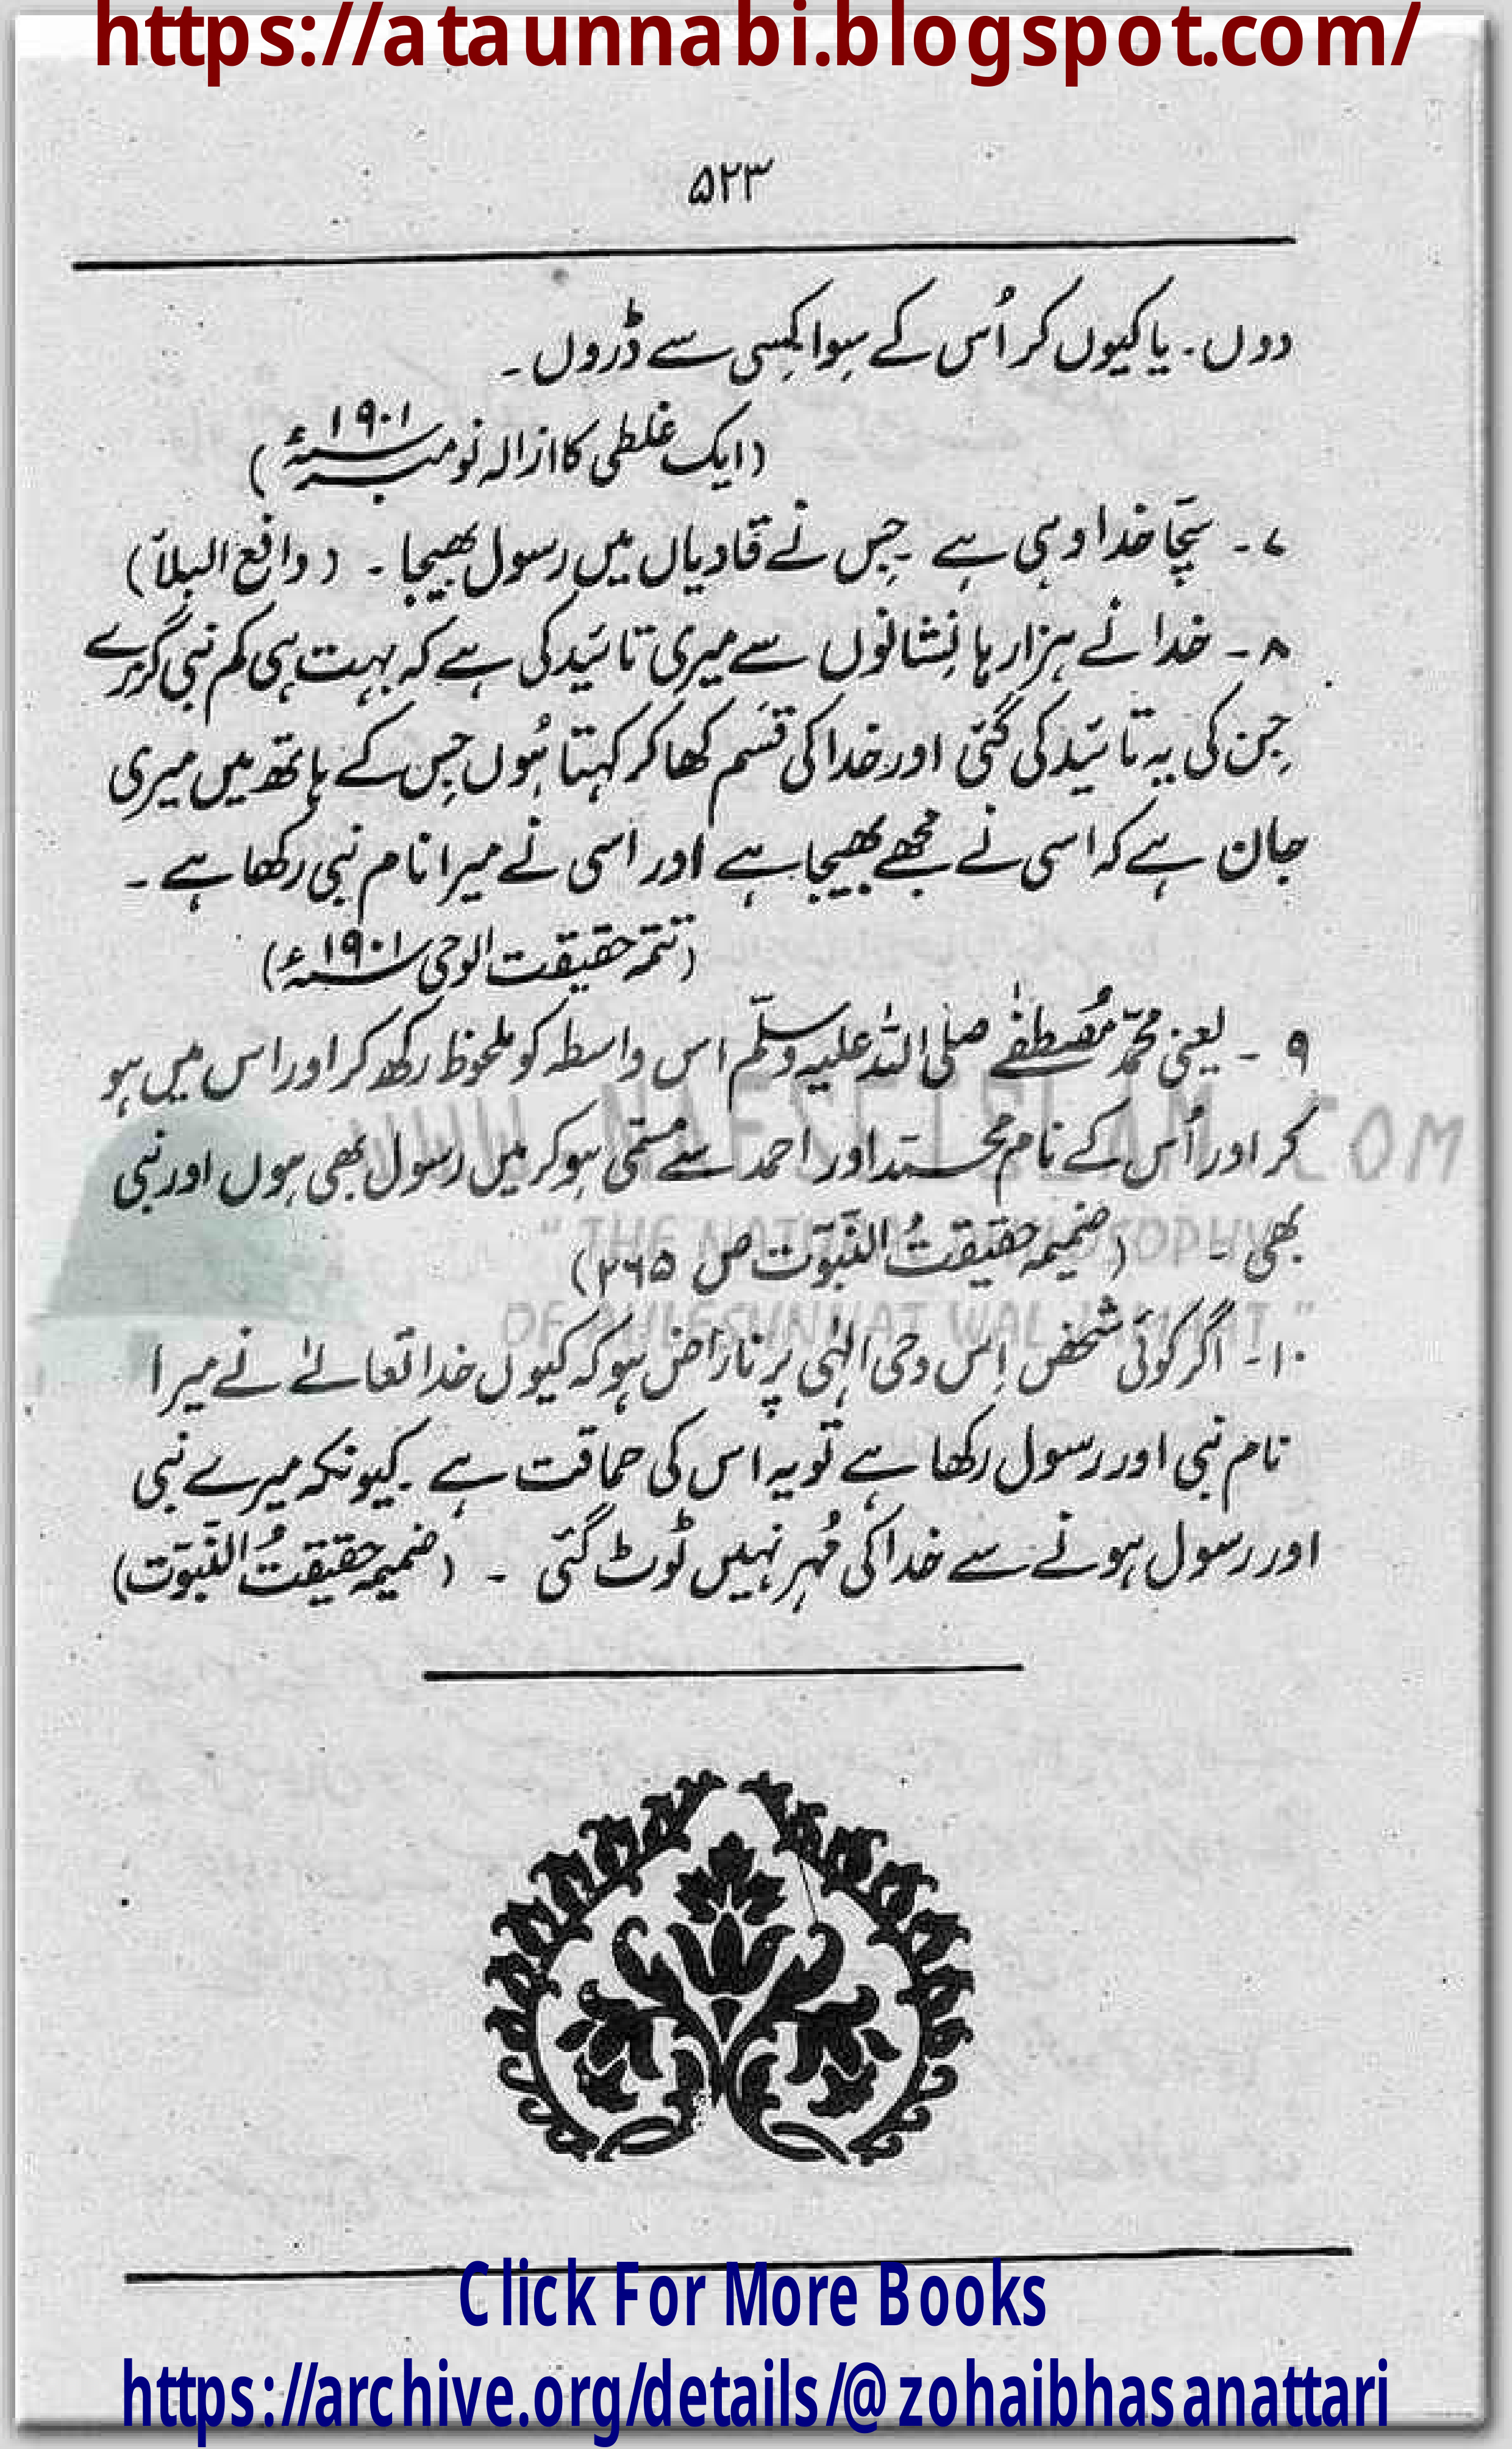 https://ataunnabi.blogspot.com/
۵۲۳
دوں۔ یا کیوں کر اُس کے سِوا کِسی سے ڈروں۔
(ایک غلطی کا ازالہ نومبر ۱۹۰۱ء)
۷۔ سچّا خدا وہی ہے جِس نے قادیاں میں رسول بھیجا۔ (دافع البلآ)
۸۔ خدا نے ہزار ہا نِشانوں سے میری تائید کی ہے کہ بہت ہی کم نبی گزرے
جِن کی یہ تائید کی گئی اور خدا کی قسَم کھا کر کہتا ہُوں جِس کے ہاتھ میں میری
جان ہے کہ اسی نے مجھے بھیجا ہے اور اسی نے میرا نام نبی رکھا ہے۔
(تتمہ حقیقت الوحی ۱۹۰۱ء)
۹۔ یعنی محمّد مُصطفٰے صلی اللہ علیہ وسلّم اس واسطہ کو ملحوظ رکھ کر اور اس میں ہو
کر اور اُس کے نام محمد اور احمد سے مسمّی ہو کر میں رسول بھی ہوں اور نبی
بھی۔ (ضمیمہ حقیقتُ النّبوّت ص ۲۶۵)
WWW.NAFSEISLAM.COM
"THE NATURAL PHILOSOPHY
OF AHLESUNNAT WAL JAMAAT"
۱۰۔ اگر کوئی شخص اِس وحی الہٰی پر ناراض ہو کہ کیوں خدا تعالےٰ نے میرا
نام نبی اور رسول رکھا ہے تو یہ اس کی حماقت ہے۔ کیونکہ میرے نبی
اور رسول ہونے سے خدا کی مُہر نہیں ٹوٹ گئی۔ (ضمیمہ حقیقتُ النّبوّت)
Click For More Books
https://archive.org/details/@zohaibhasanattari